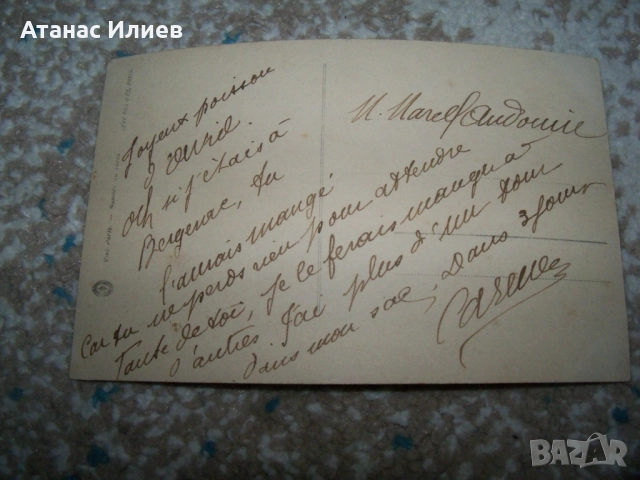 Атанас Илиев
Joyeux poisson
d'avril.
Oh si j'étais à
Bergerac, tu
l'aurais mangé
Car tu ne perds rien pour attendre
Tante de toi, je le ferais
d'autres J'ai plus d'un tour
dans mon sac, Dans 3 jours
M. Marcel
BAZAR